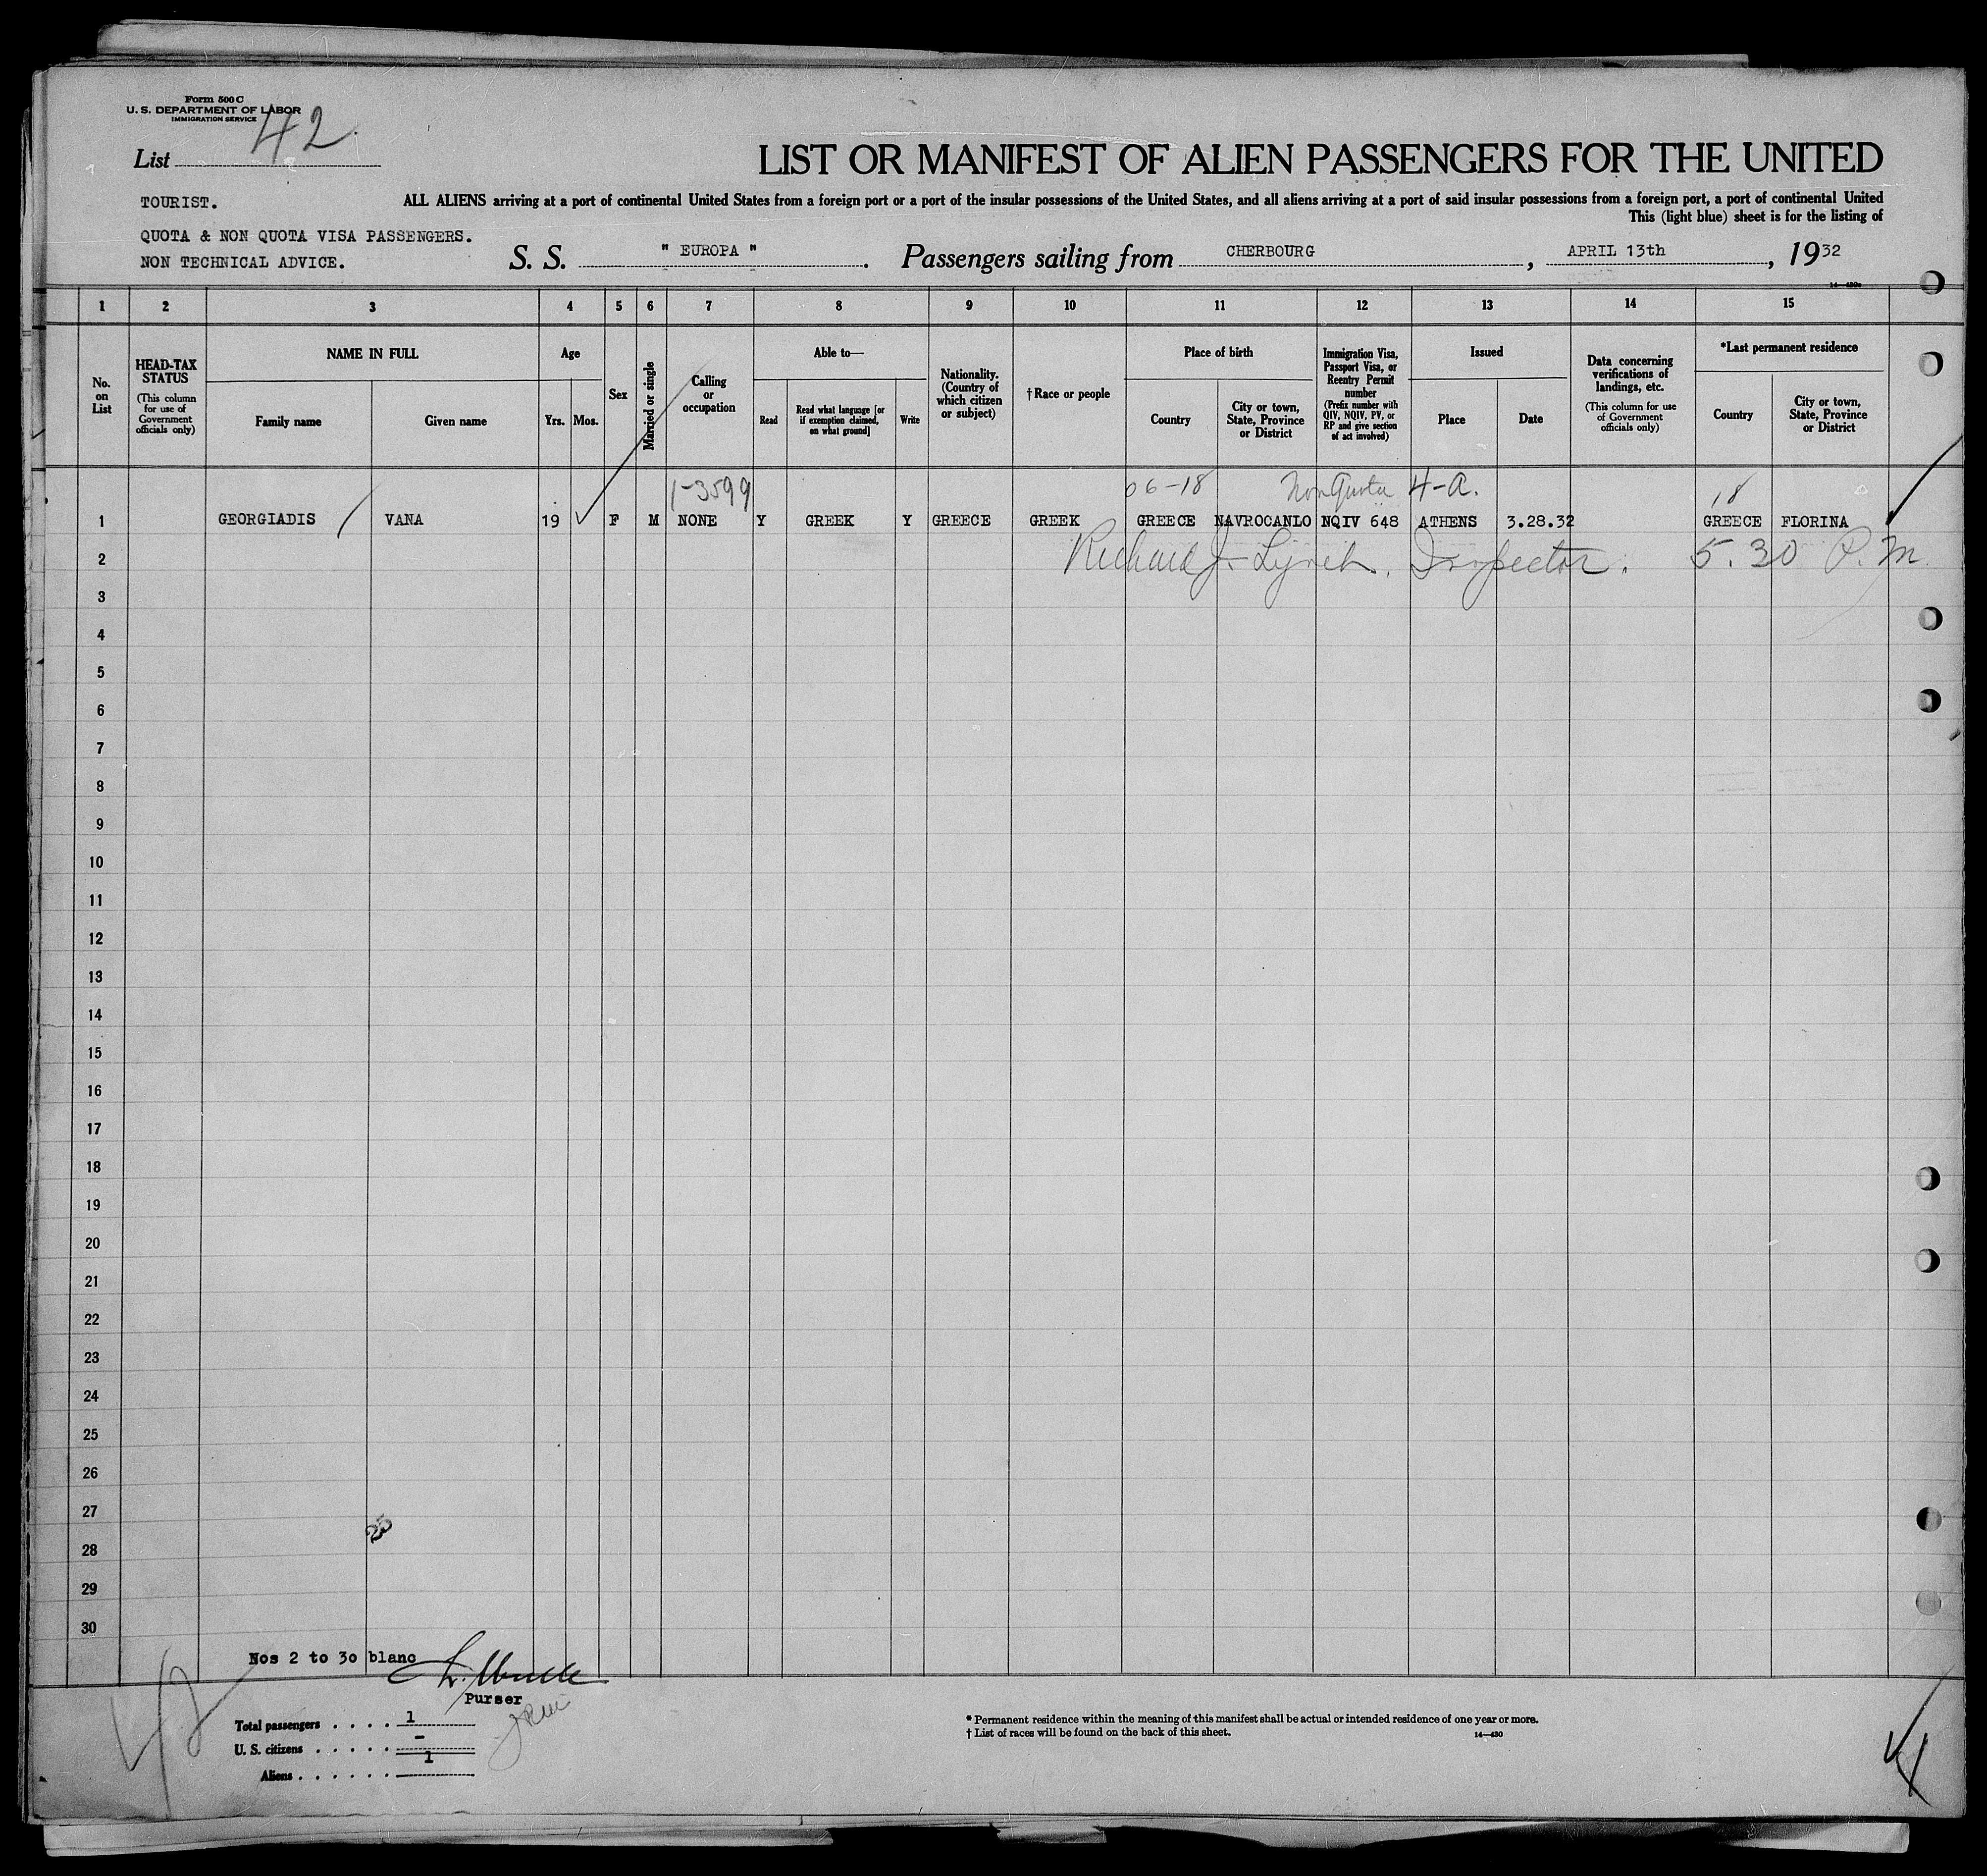 Form 500 C
U. S. DEPARTMENT OF LABOR
IMMIGRATION SERVICE
List 42
LIST OR MANIFEST OF ALIEN PASSENGERS FOR THE UNITED
TOURIST.
ALL ALIENS arriving at a port of continental United States from a foreign port or a port of the insular possessions of the United States, and all aliens arriving at a port of said insular possessions from a foreign port, a port of continental United
This (light blue) sheet is for the listing of
QUOTA & NON QUOTA VISA PASSENGERS.
NON TECHNICAL ADVICE.
S. S. " EUROPA ". Passengers sailing from CHERBOURG, APRIL 13th, 1932
1 2 3 4 5 6 7 8 9 10 11 12 13 14 15
No. on List
HEAD-TAX STATUS
(This column for use of Government officials only)
NAME IN FULL
Family name
Given name
Age
Yrs.
Mos.
Sex
Married or single
Calling or occupation
Able to—
Read
Read what language [or if exemption claimed, on what ground]
Write
Nationality. (Country of which citizen or subject)
†Race or people
Place of birth
Country
City or town, State, Province or District
Immigration Visa, Passport Visa, or Reentry Permit number
(Prefix number with QIV, NQIV, PV, or RP and give section of act involved)
Issued
Place
Date
Data concerning verifications of landings, etc.
(This column for use of Government officials only)
*Last permanent residence
Country
City or town, State, Province or District
1-3599 06-18 Non Quota 4-A. 18
1 GEORGIADIS VANA 19 F M NONE Y GREEK Y GREECE GREEK GREECE NAVROCANLO NQIV 648 ATHENS 3.28.32 GREECE FLORINA
2 Richard J. Lynch. Inspector. 5.30 P.M.
3
4
5
6
7
8
9
10
11
12
13
14
15
16
17
18
19
20
21
22
23
24
25
26
27
28
29
30
Nos 2 to 30 blanc
Purser
Total passengers . . . . 1
U. S. citizens . . . . . -
Aliens . . . . . . 1
* Permanent residence within the meaning of this manifest shall be actual or intended residence of one year or more.
† List of races will be found on the back of this sheet.
14—430
42